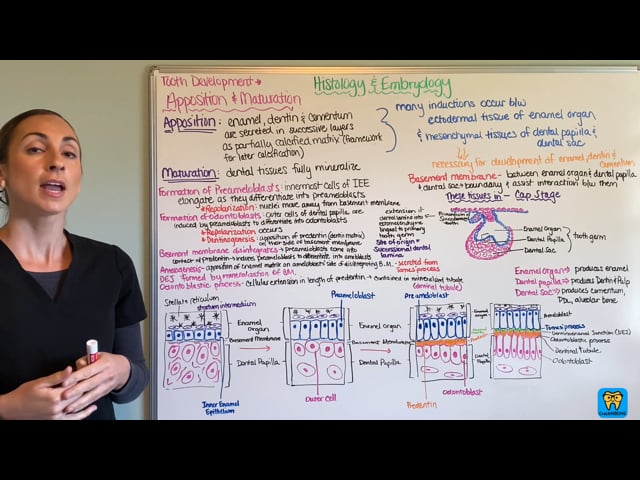 Tooth Development →
Histology & Embryology
Apposition & Maturation
Apposition: enamel, dentin & cementum
are secreted in successive layers
as partially calcified matrix (framework
for later calcification)
many inductions occur b/w
ectodermal tissue of enamel organ
& mesenchymal tissues of dental papilla &
dental sac
necessary for development of enamel, dentin &
cementum
Maturation: dental tissues fully mineralize
Basement membrane - between enamel organ & dental papilla
& dental sac → boundary & assist interaction b/w them
These tissues in - Cap Stage
Formation of Preameloblasts: innermost cells of IEE
elongate as they differentiate into preameloblasts
* Repolarization: nuclei move away from basement membrane
Formation of odontoblasts: outer cells of dental papilla are
induced by preameloblasts to differentiate into odontoblasts
* Repolarization occurs
* Dentinogenesis: apposition of predentin (dentin matrix)
on their side of basement membrane
Basement membrane disintegrates → preameloblasts come into
contact w/ predentin → induces preameloblasts to differentiate into ameloblasts
Amelogenesis - apposition of enamel matrix on ameloblasts side of disintegrating B.M. → secreted from
Tomes' process
DEJ formed by mineralization of BM.
Odontoblastic process → cellular extension in length of predentin → contained in mineralized tubule
(dentinal tubule)
extension of
dental lamina into
ectomesenchyme
lingual to primary
tooth germ
Site of origin
Successional dental
lamina
Enamel Organ
Dental Papilla
Dental Sac
tooth germ
Enamel Organ → produces enamel
Dental papilla → produces Dentin & Pulp
Dental Sac → produces cementum,
PDL, alveolar bone.
Stellate reticulum
stratum intermedium
Enamel
organ
Basement Membrane
Dental Papilla
Inner Enamel
Epithelium
Preameloblast
Enamel Organ
Basement Membrane
Dental Papilla
Outer Cell
Preameloblast
Predentin
Enamel
organ
Dental
Papilla
Odontoblast
Ameloblast
Tomes' process
Dentinoenamel Junction (DEJ)
Odontoblastic process
Dentinal Tubule
Odontoblast